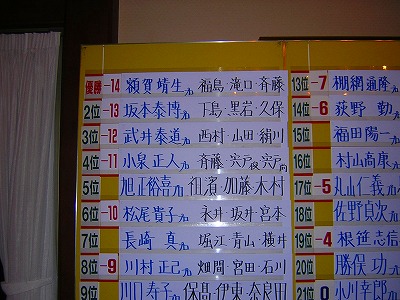 優勝 -14 額賀靖生プロ 福島・滝口・斉藤
2位 -13 坂本泰博プロ 下島・黒岩・久保
3位 -12 武井泰道プロ 西村・山田・絹川
4位 -11 小泉正人プロ 斉藤・宍戸・宍戸
5位 旭 正裕喜プロ 加藤・木村
6位 -10 松尾貴子プロ 永井・坂井・宮本
7位 長崎 真プロ 堀江・青山・横井
8位 -9 川村正己プロ 畑間・宮田・石川
9位 川口寿子プロ 保高・伊東・奈良田
13位 -7 棚網通隆プロ
14位 -6 荻野 勤プロ
15位 福田陽一プロ
16位 村山高康プロ
17位 -5 丸山仁義プロ
18位 佐野貞次プロ
19位 -4 根笹志信
20位 勝俣 功プロ
21位 0 小川幸郎